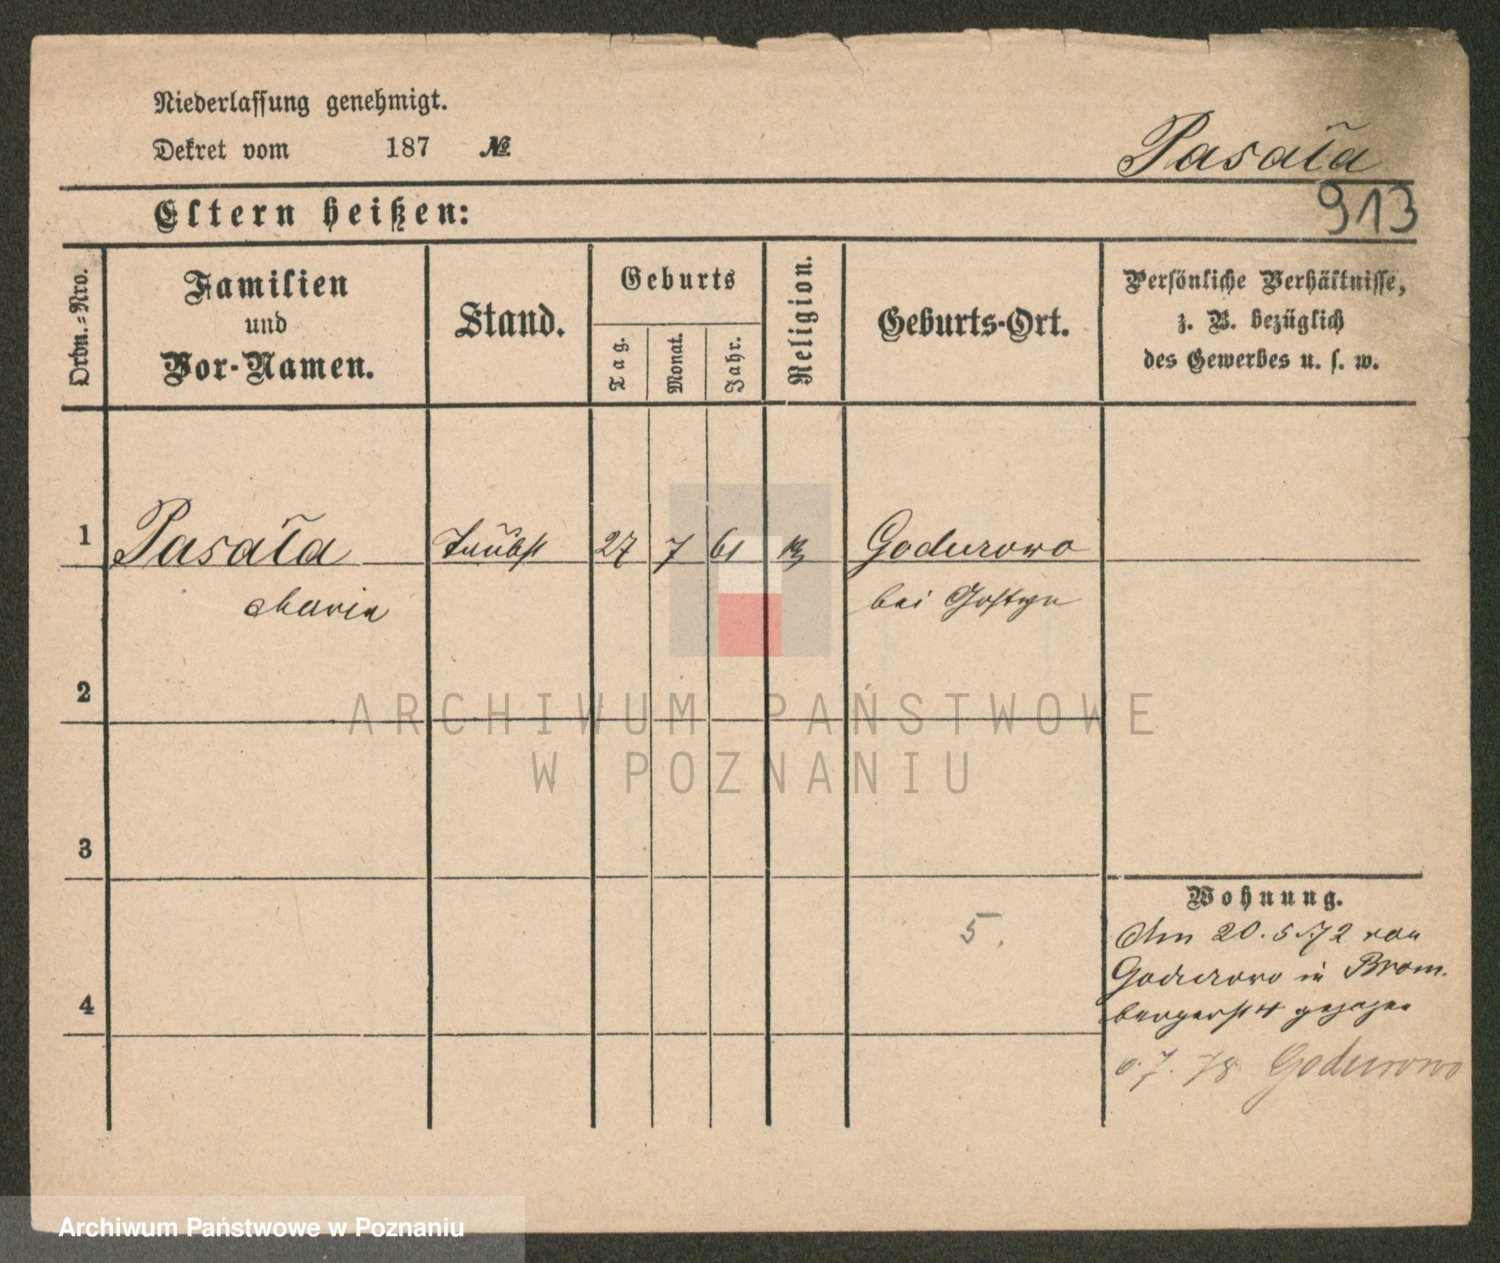 Niederlassung genehmigt.
Dekret vom 187 №
Pasała
913
Eltern heißen:
Ordn.-Nro.
Familien
und
Vor-Namen.
Stand.
Geburts
Tag.
Monat.
Jahr.
Religion.
Geburts-Ort.
Persönliche Verhältnisse,
z. B. bezüglich
des Gewerbes u. s. w.
1 Pasała 27 7 61 Godurowo
Maria bei Gostyn
2
ARCHIWUM PAŃSTWOWE
W POZNANIU
3
Wohnung.
5.
Am 20.5.72 von
Godurowo in Brom.
4
bergerst 4 gezogen
7. 78 Godurowo
Archiwum Państwowe w Poznaniu